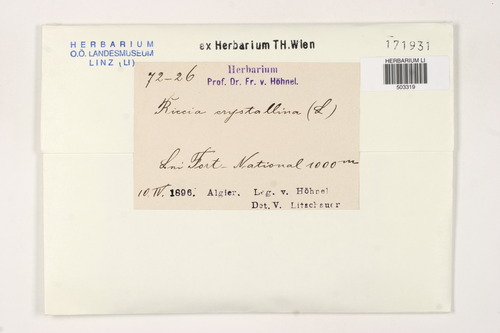 HERBARIUM
O.Ö. LANDESMUSEUM
LINZ (LI)
ex Herbarium TH.Wien
171931
HERBARIUM LI
503319
72-26
Herbarium
Prof. Dr. Fr. v. Höhnel.
Riccia crystallina (L)
Fort-National 1000 m
10.IV. 1896. Algier. Leg. v. Höhnel
Det. V. Litschauer